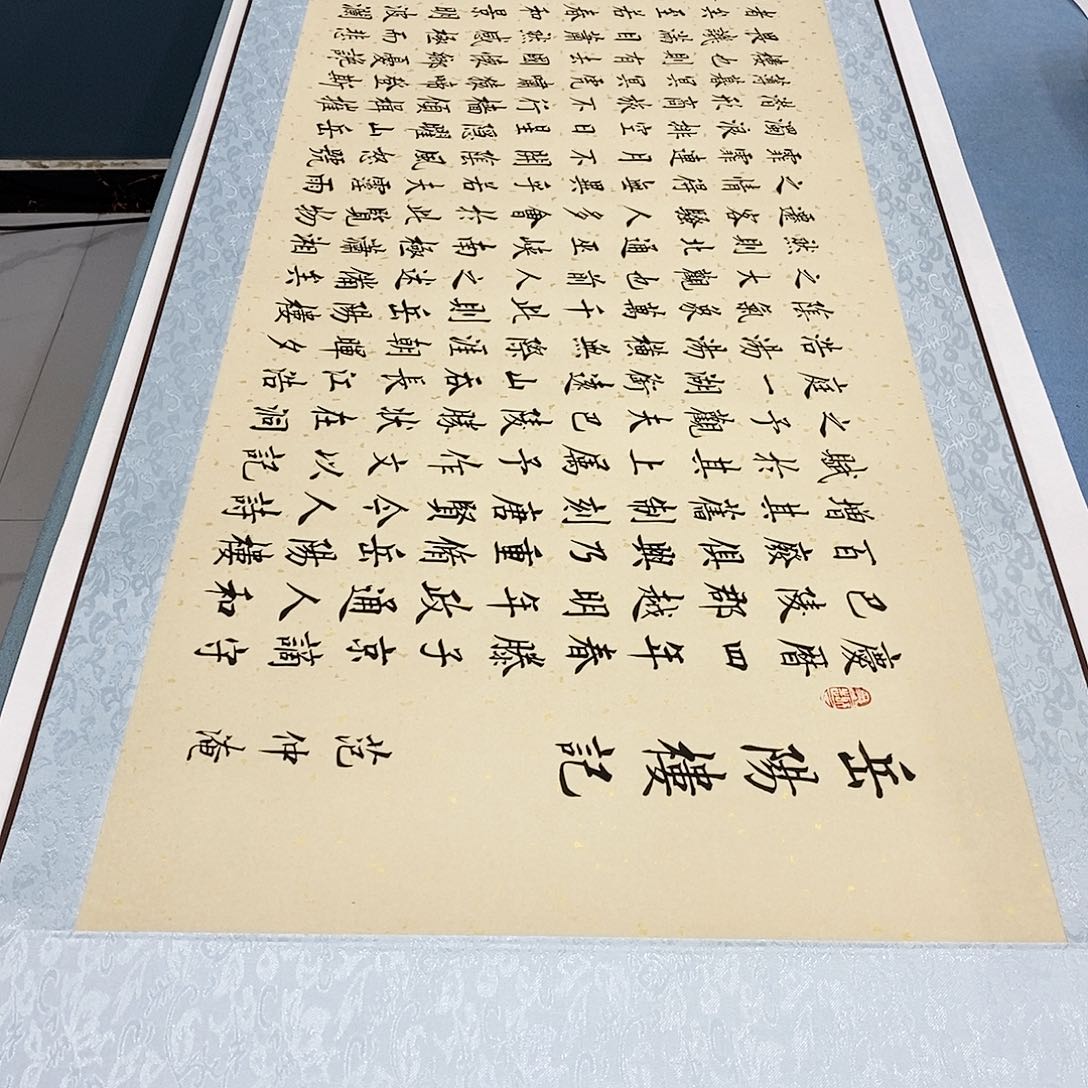 岳陽樓記 范仲淹
慶曆四年春滕子京謫守
巴陵郡越明年政通人和
百廢俱興乃重脩岳陽樓
增其舊制刻唐賢今人詩
賦於其上屬予作文以記
之予觀夫巴陵勝狀在洞
庭一湖銜遠山吞長江浩
浩湯湯橫無際涯朝暉夕
陰氣象萬千此則岳陽樓
之大觀也前人之述備矣
然則北通巫峽南極瀟湘
遷客騷人多會於此覽物
之情得無異乎若夫霪雨
霏霏連月不開陰風怒號
濁浪排空日星隱曜山岳
潛形商旅不行檣傾楫摧
薄暮冥冥虎嘯猿啼登斯
樓也則有去國懷鄉憂讒
畏譏滿目蕭然感極而悲
者矣至若春和景明波瀾